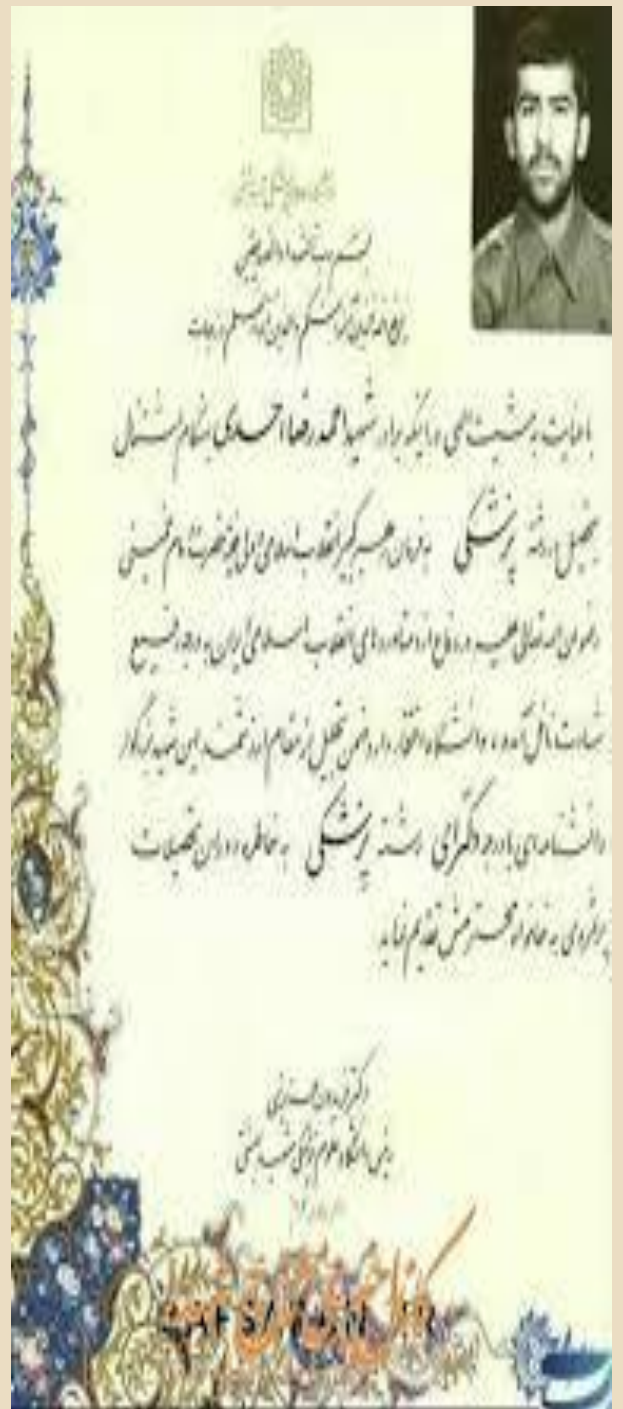 بسم رب الشهداء والصدیقین
یرفع الله الذین آمنوا منکم والذین اوتوا العلم درجات
با عنایت به مشیت الهی و اینکه برادر شهید احمد رضا احدی بهنگام اشتغال
بتحصیل در رشته پزشکی به فرمان رهبر کبیر انقلاب اسلامی ایران حضرت امام خمینی
رضوان الله تعالی علیه در دفاع از دستاوردهای انقلاب اسلامی ایران به درجه رفیع
شهادت نائل آمده، دانشگاه افتخار دارد ضمن تجلیل از مقام ارزشمند این شهید بزرگوار
دانشنامه‌ای با درجه دکترای رشته پزشکی به خاطره دوران تحصیلات
به خانواده محترمش تقدیم نماید
دکتر
رئیس دانشگاه علوم پزشکی شهید بهشتی